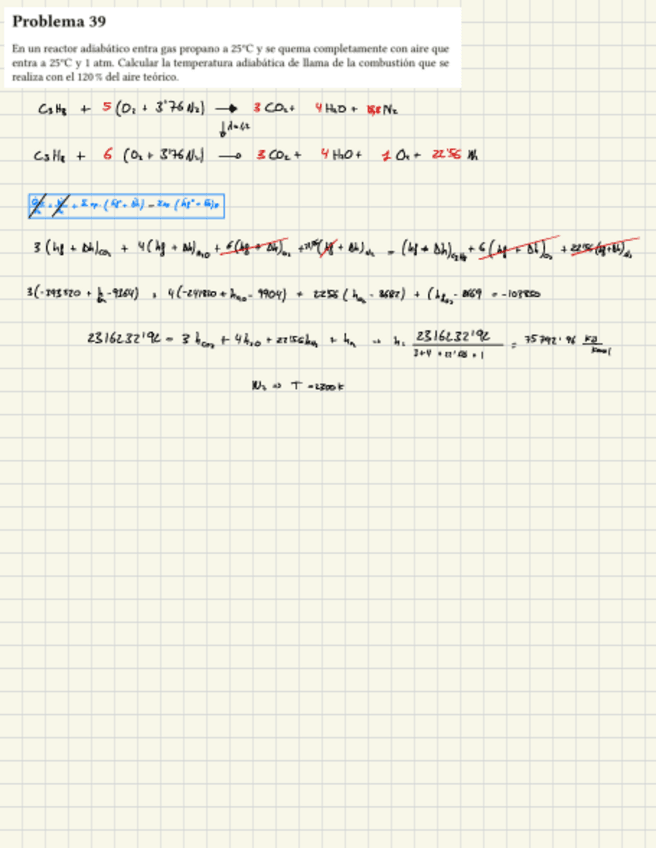 Problema 39
En un reactor adiabático entra gas propano a 25°C y se quema completamente con aire que
entra a 25°C y 1 atm. Calcular la temperatura adiabática de llama de la combustión que se
realiza con el 120 % del aire teórico.
C3H8 + 5 (O2 + 3'76 N2) → 3 CO2 + 4 H2O + 18,8 N2
↓ λ=1,2
C3H8 + 6 (O2 + 3'76 N2) → 3 CO2 + 4 H2O + 1 O2 + 22'56 N2
3 (hf + Δh)CO2 + 4 (hf + Δh)H2O + 6 (hf + Δh)O2 + (hf + Δh)N2 = (hf + Δh)C3H8 + 6 (hf + Δh)O2 + 22'56 (hf + Δh)N2
3(-393520 + h - 9364) + 4(-241820 + hH2O - 9904) + 22'56 ( hN2 - 8682) + ( - 103850
2316232'92 = 3 hCO2 + 4 hH2O + 22'56 hN2 + h → h = 2316232'92 / 3+4+22'56+1 = 75792'96 kJ/kmol
N2 ⇒ T =2300k